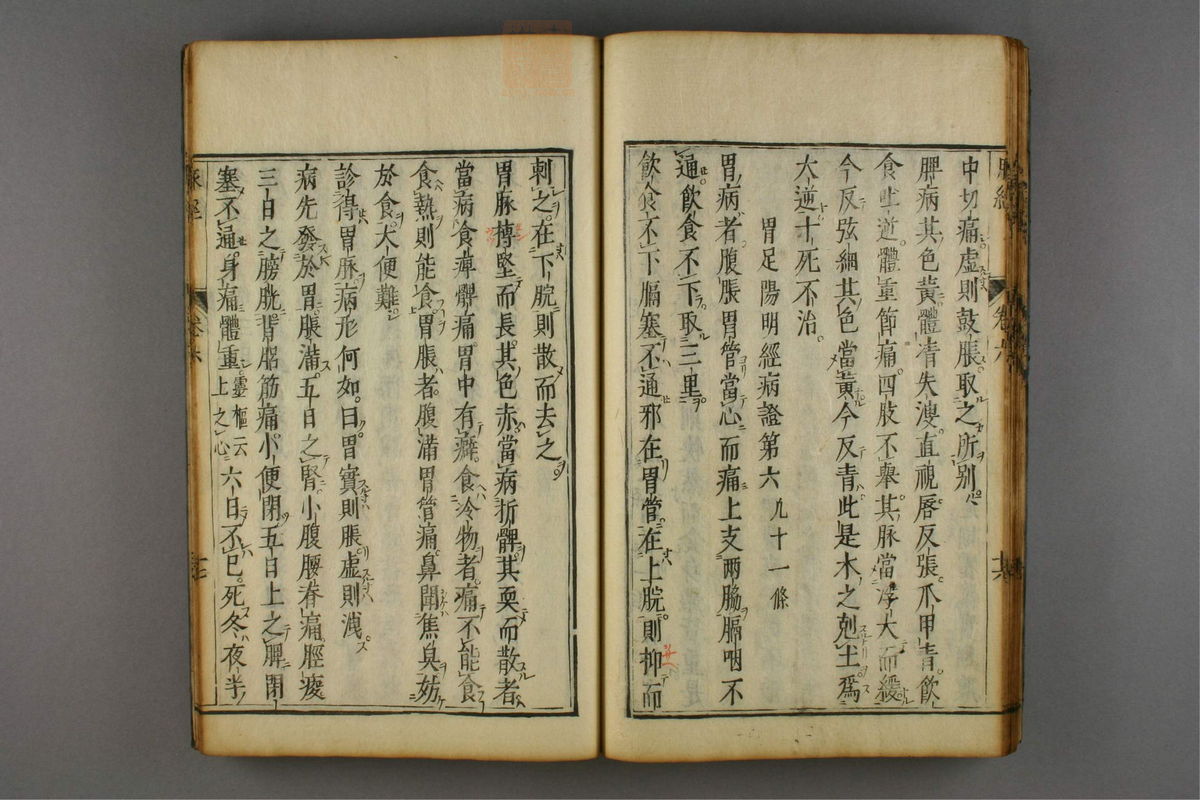 脉經 卷六 十六
中切痛虛則鼓脹取之所别
脾病其色黃體青失溲直視唇反張爪甲青飲
食吐逆體重節痛四肢不舉其脉當浮大而緩
今反弦細其色當黃今反青此是木之剋土爲
大逆十死不治
胃足陽明經病證第六 九十一條
胃病者腹脹胃管當心而痛上支两脇膈咽不
通飲食不下取三里
飲食不下膈塞不通邪在胃管在上脘則抑而
刺之在下脘則散而去之
胃脉摶堅而長其色赤當病折髀其耎而散者
當病食痺髀痛胃中有癖食冷物者痛不能食
食熱則能食胃脹者腹滿胃管痛鼻聞焦臭妨
於食大便難
診得胃脉病形何如曰胃實則脹虛則洩
病先發於胃脹滿五日之腎小腹腰脊痛脛痠
三日之膀胱背膂筋痛小便閉五日上之脾閉
塞不通身痛體重靈樞云上之心六日不已死冬夜半
脉經 卷六